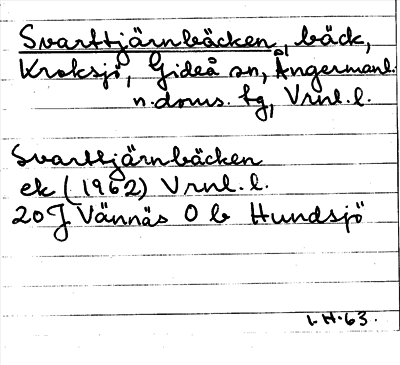 Svarttjärnbäcken, bäck,
Kroksjö, Gideå sn, Ångermanl.
n. doms. tg, Vrnl. l.
Svarttjärnbäcken
ek (1962) Vrnl. l.
20J Vännäs O b Hundsjö
I.H.63.